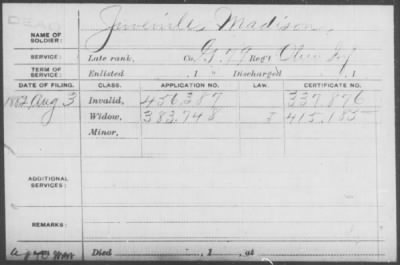 DEAD
NAME OF SOLDIER: Juvenile, Madison,
SERVICE: Late rank, Co. G, 79 Reg't Ohio Inf
TERM OF SERVICE: Enlisted , 1 " Discharged , 1
DATE OF FILING. CLASS. APPLICATION NO. LAW. CERTIFICATE NO.
1882 Aug 3 Invalid, 456,387 337,876
Widow, 383,748 415,185
Minor,
ADDITIONAL SERVICES:
REMARKS:
Died , 1 , at